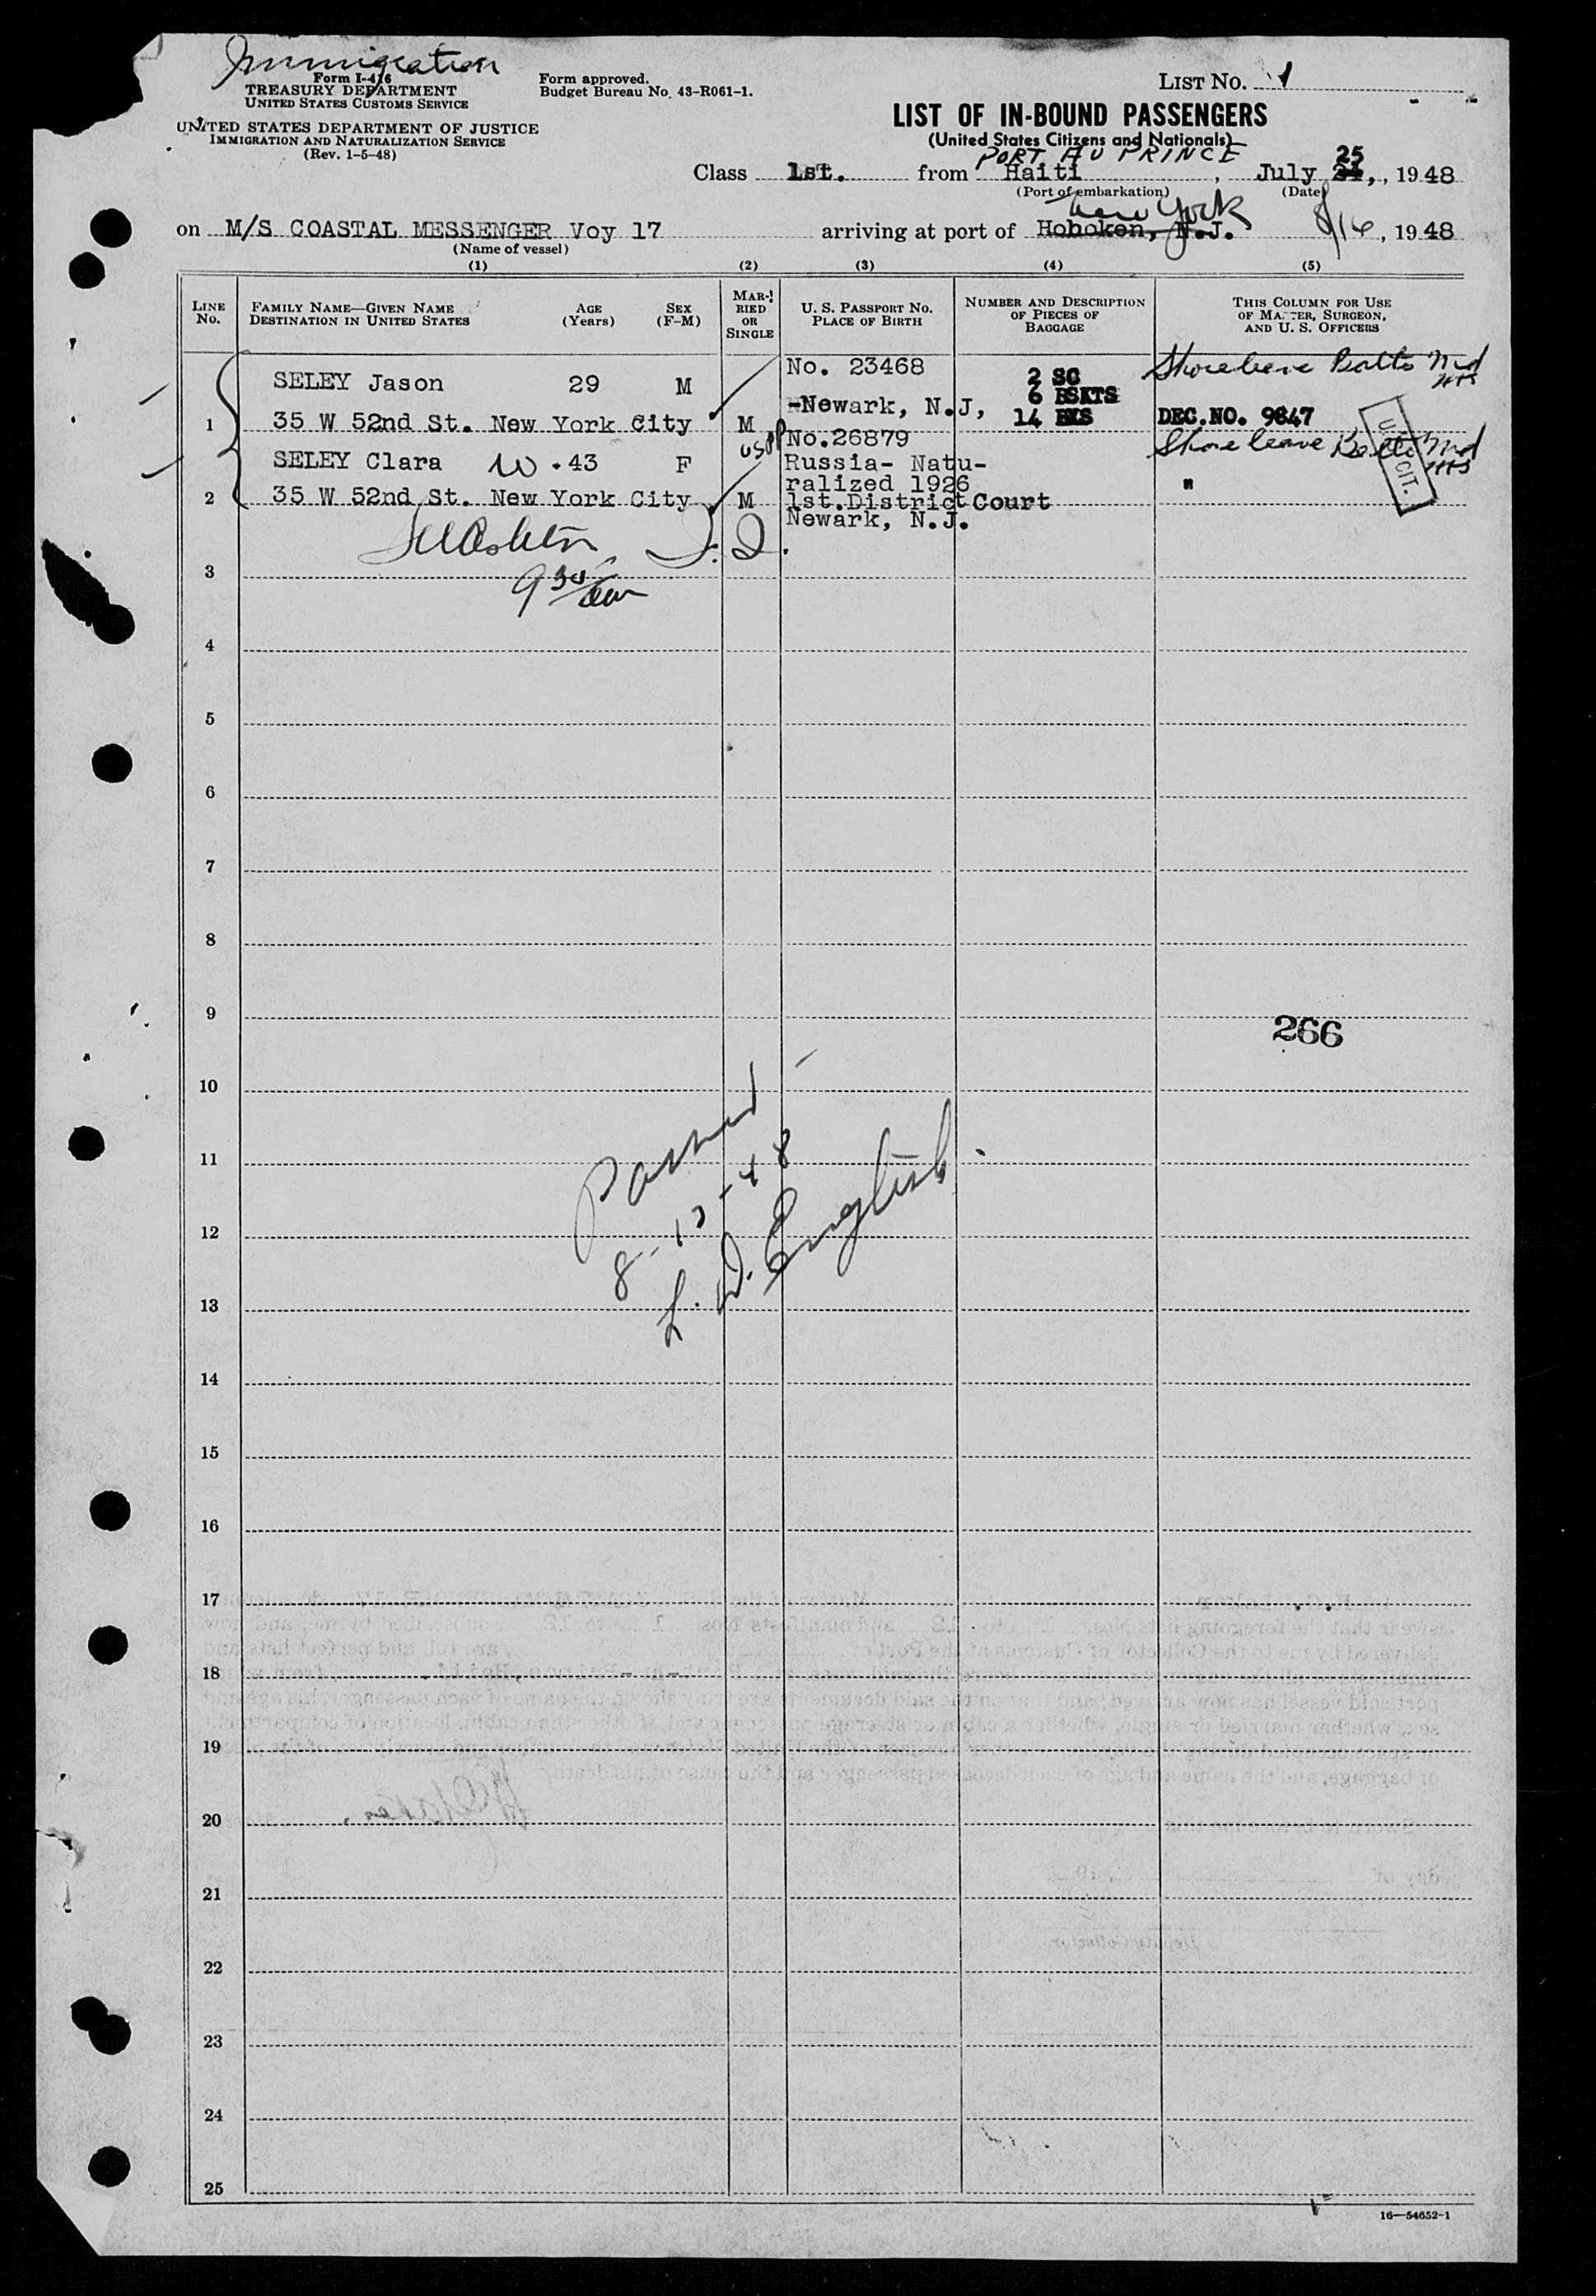 Immigration
Form I-416
TREASURY DEPARTMENT
UNITED STATES CUSTOMS SERVICE
UNITED STATES DEPARTMENT OF JUSTICE
IMMIGRATION AND NATURALIZATION SERVICE
(Rev. 1-5-48)
Form approved.
Budget Bureau No. 43-R061-1.
LIST NO. 1
LIST OF IN-BOUND PASSENGERS
(United States Citizens and Nationals)
PORT AU PRINCE 25
Class 1st. from Haiti, July 24, 1948
(Port of embarkation) (Date)
New York
on M/S COASTAL MESSENGER Voy 17 arriving at port of Hoboken, N.J. 8/16, 1948
(Name of vessel)
(1) (2) (3) (4) (5)
LINE NO.
FAMILY NAME—GIVEN NAME
DESTINATION IN UNITED STATES
AGE
(Years)
SEX
(F-M)
MARRIED
OR
SINGLE
U. S. PASSPORT NO.
PLACE OF BIRTH
NUMBER AND DESCRIPTION
OF PIECES OF
BAGGAGE
THIS COLUMN FOR USE
OF MASTER, SURGEON,
AND U. S. OFFICERS
No. 23468 Shore leave Balto Md
SELEY Jason 29 M 2 SC
6 BSKTS
-Newark, N.J,
1 35 W 52nd St. New York City M 14 BXS DEC.NO. 9847
USPP No.26879 Shore leave Balto Md
SELEY Clara W. 43 F Russia- Natu-
ralized 1926 "
2 35 W 52nd St. New York City M 1st.District Court
Newark, N.J.
U.S. CIT.
3
9 30/am
4
5
6
7
8
9
266
10
11
12
13
Passed
8-13-48
L. D. English
14
15
16
17
18
19
20
21
22
23
24
25
16—54652-1